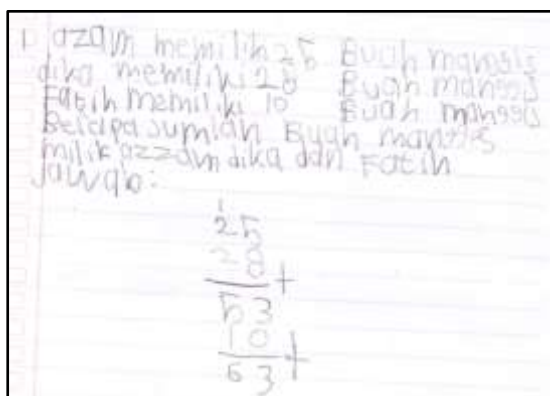 1 azam memiliki 25 Buah manggis
dika memiliki 28 Buah manggis
Fatih memiliki 10 Buah manggis
Berapa Jumlah Buah manggis
milik azzam dika dan Fatih
Jawab:
1
25
28
+
53
10
+
63